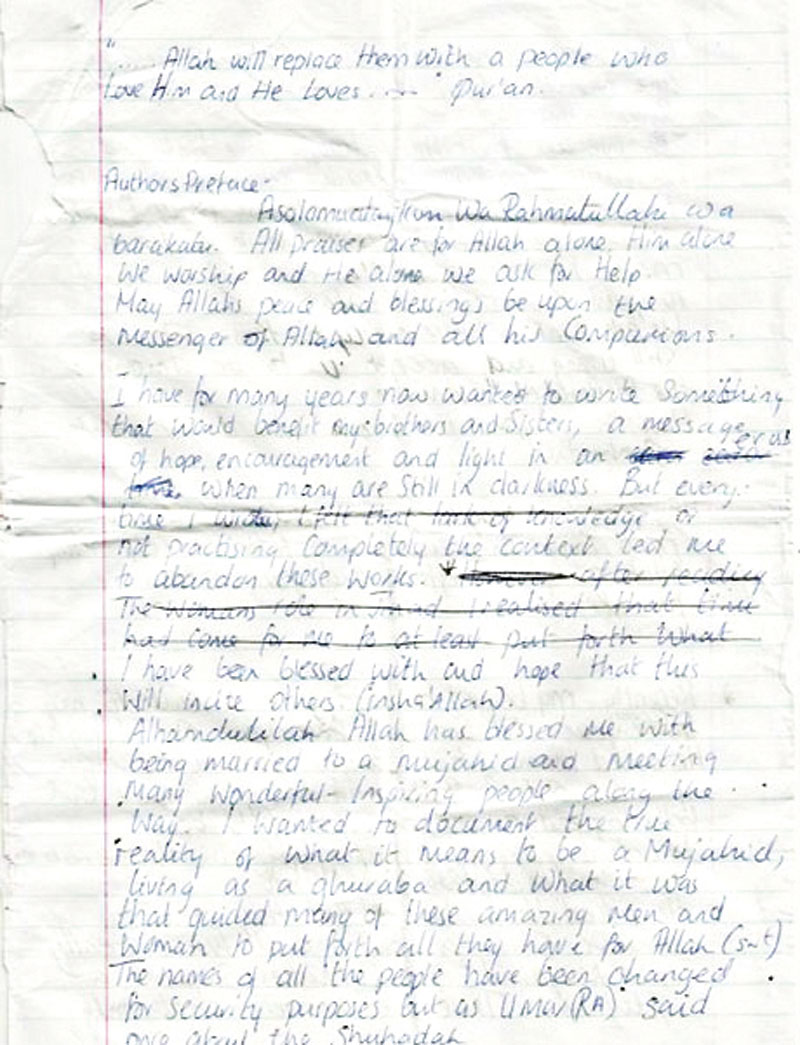 "..... Allah will replace them with a people who
Love Him and He Loves ....." Qur'an.
Authors Preface-
Asalamuataykum Wa Rahmatullahi wa
barakatu. All praises are for Allah alone, Him alone
We worship and He alone we ask for Help.
May Allahs peace and blessings be upon the
Messenger of Allah and all his Companions.
I have for many years now wanted to write Something
that would benefit my brothers and Sisters, a message
of hope, encouragement and light in an
when many are Still in darkness. But every-
time I wrote, I felt that lack of knowledge or
not practising Completely the context led me
to abandon these works. However after reading
The Womans role in Jihad I realised that time
had come for me to at least put forth What
I have been blessed with and hope that this
Will incite others (insha'Allah).
Alhamdulilah Allah has blessed me with
being married to a Mujahid and Meeting
Many Wonderful- Inspiring people along the
Way. I wanted to document the true
reality of What it Means to be a Mujahid,
living as a ghuraba and What it was
that guided many of these amazing Men and
Woman to put forth all they have for Allah (swt)
The names of all the people have been changed
for Security purposes but as Umar (RA) said
once about the Shuhadah